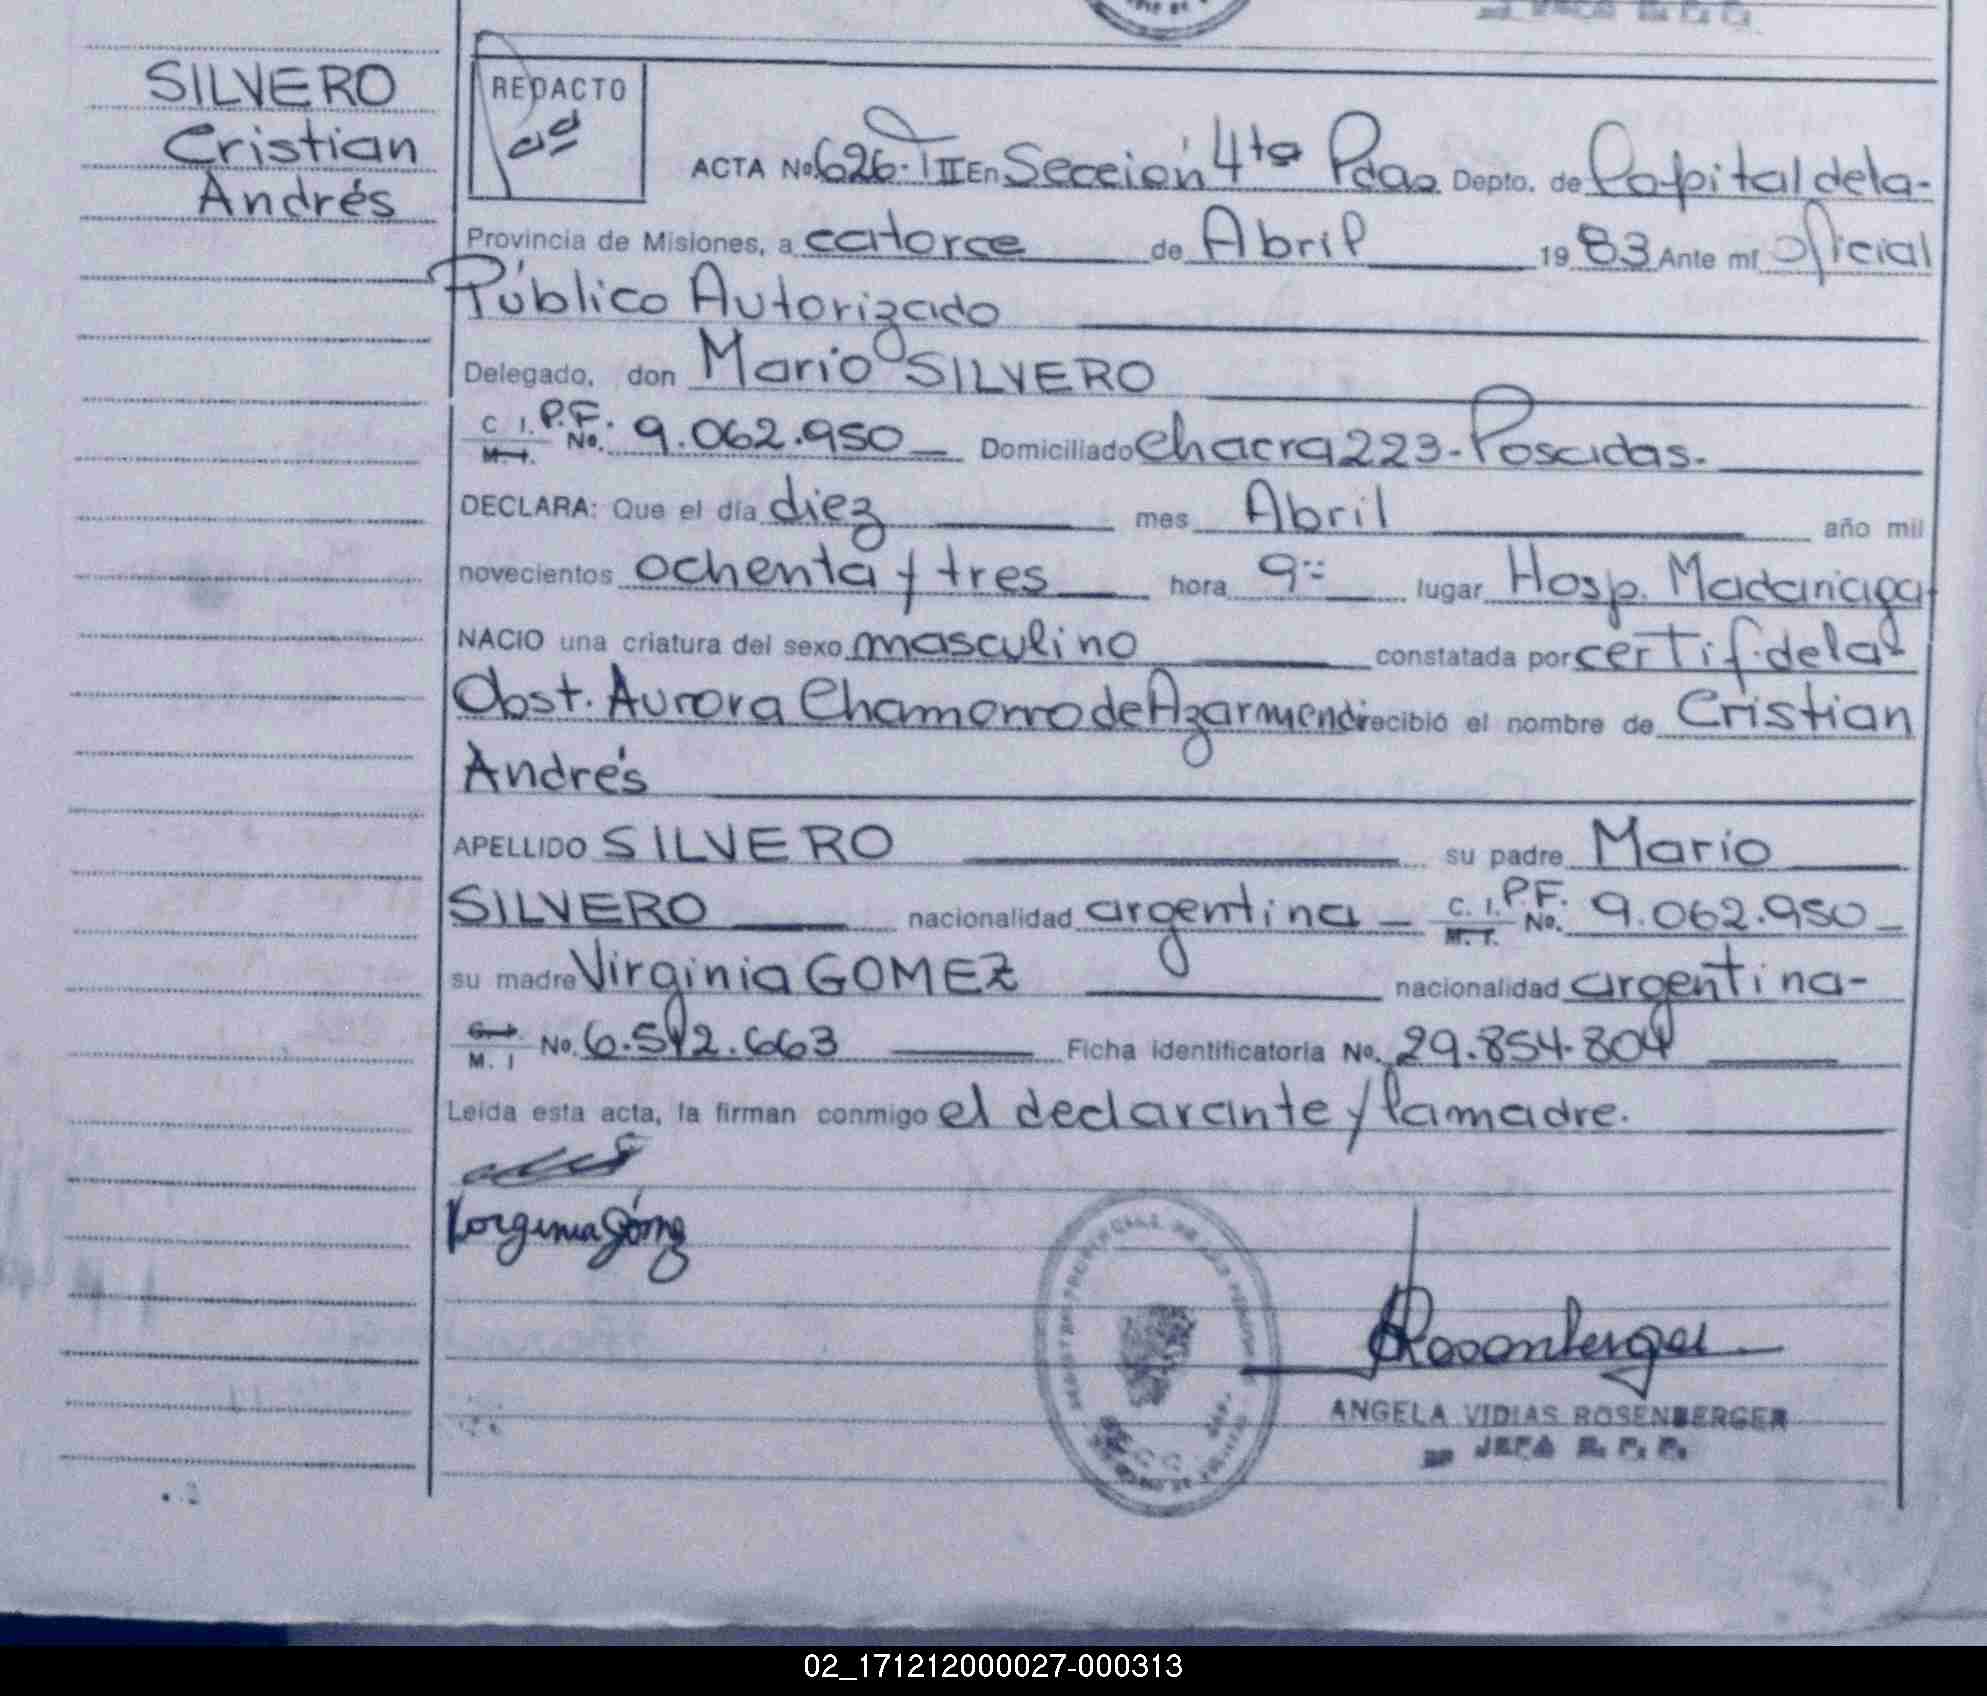 SILVERO
Cristian
Andrés
REDACTO
ACTA No 626-T II En Sección 4ta Pdas Depto. de Capital de la-
Provincia de Misiones, a catorce de Abril 1983 Ante mí Oficial
Público Autorizado
Delegado, don Mario SILVERO
C. I. P.F. M. I. No. 9.062.950 Domiciliado Chacra 223-Posadas.
DECLARA: Que el día diez mes Abril año mil
novecientos ochenta y tres hora 9 lugar Hosp. Madariaga
NACIO una criatura del sexo masculino constatada por certif. de la
Obst. Aurora Chamorro de Azarmendi recibió el nombre de Cristian
Andrés
APELLIDO SILVERO su padre Mario
SILVERO nacionalidad argentina - C. I. P.F. M. I. No. 9.062.950
su madre Virginia GOMEZ nacionalidad argentina-
M. I No. 6.512.663 Ficha identificatoria No. 29.854.804
Leída esta acta, la firman conmigo el declarante y la madre.
ANGELA VIDIAS ROSENBERGER
JEFA R. P. P.
02_171212000027-000313